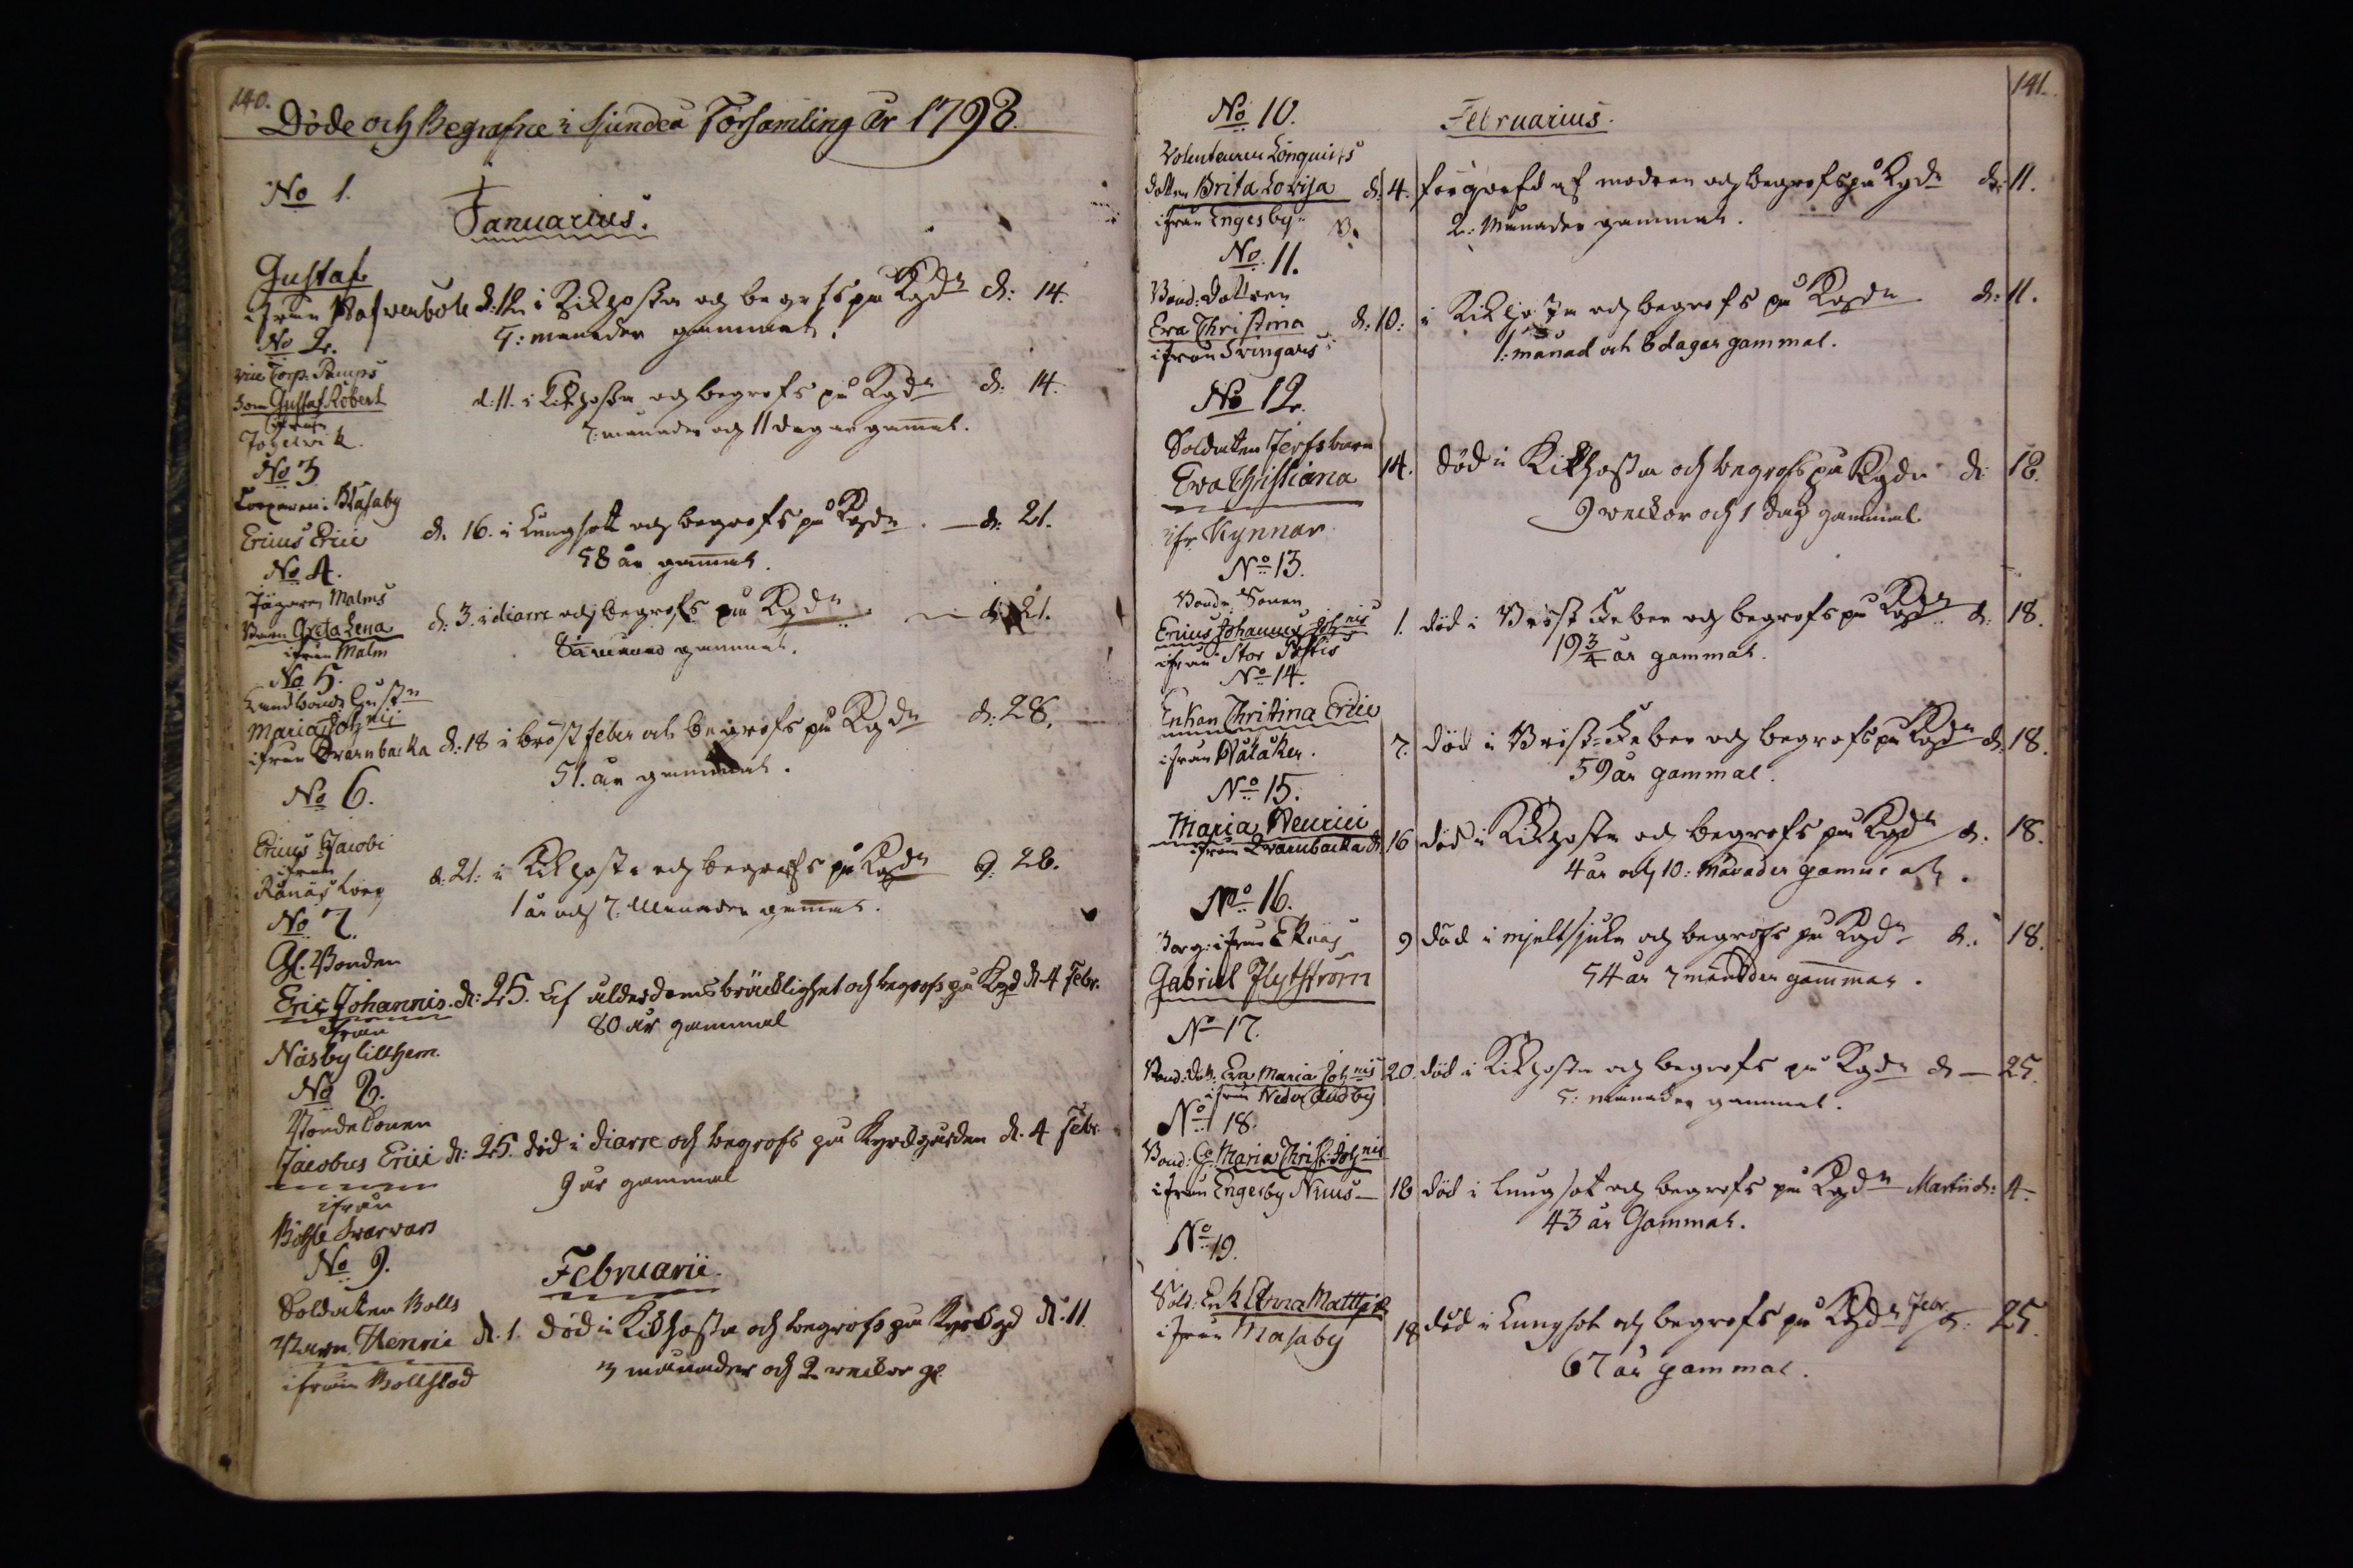 140.
Döde och Begrafne i Sjundeå Församling År 1798.
No 1.
Januarius.
Gustaf
ifrån d: 12 i Kikhosta och begrofs på Kgdn d: 14.
5: månader gammal.
No 2.
Son Gustaf Robert
ifrån
d: 11. i Kikhosta och begrofs på Kgdn d: 14.
7: månader och 11 dagar gammal.
No 3
Ericus Erici
d. 16. i Lungsott och begrofs på Kgdn. — d: 21.
58 år gammal.
No 4.
Jägaren Malms
Barn Greta Lena
ifrån Malm
d: 3. i diarre och begrofs på Kgdn. d: 21.
gammal.
No 5.
Maria Joh:nis
ifrån Qvarnbacka d: 18 i bröstfeber och begrofs på Kgdn d: 28.
51. år gammal.
No 6.
Ericus Jacobi
ifrån
d: 21: i Kikhosta och begrofs på Kgdn d: 28.
1 år och 7: Månader gammal.
No 7.
Gl. Bonden
Eric Johannis. d: 25. af ålderdomsbräcklighet och begrofs på Kgd d. 4 Febr.
ifrån
80 år gammal
Näsby Lillhem.
No 8.
Bonde Sonen
Jacobus Erici d: 25. död i diarre och begrofs på Kyrckgården d. 4 Febr.
9 år gammal
ifrån
Böhle
No 9.
Februarii.
Soldaten Bolls
Barn Henric d. 1. död i Kikhosta och begrofs på Kyrckgd d. 11
3 månader och 2 veckor gl.
ifrån Bollstad
141.
No 10.
Februarius.
Volenteuren Lönquists
dotter Brita Lovisa d: 4. förqväfd af modren och begrofs på Kgdn d: 11.
ifrån Engesby
2: Månader gammal.
No. 11.
Bond: Dottren
Eva Christina d: 10: i Kikhosta och begrofs på Kgdn d: 11.
ifrån Svingars
1: månad och 8 dagar gammal.
No 12.
Soldaten barn
Eva Christiana 14. död i Kikhosta och begrofs på Kgdn d: 18.
9 veckor och 1 dag gammal
ifr. Kynnar
No 13.
Bonde Sonen
Ericus Johannes Joh:nis 1. död i Bröst Feber och begrofs på Kgdn d: 18.
ifrån Stor
19 3/4 år gammal.
No 14.
Enkan Christina Erici
ifrån 7. död i Bröst-Feber och begrofs på Kgdn d. 18.
59 år gammal.
No 15.
Maria Henrici
ifrån Qvarnbacka d: 16 död i Kikhosta och begrofs på Kgdn d. 18.
4 år och 10: månader gammal.
No 16.
ifrån Eknäs 9 död i mjeltsjuka och begrofs på Kgdn d. 18.
Gabriel Flytström
54 år 7 månader gammal.
No 17.
Bond: Dot: Eva Maria Joh:nis 20. död i Kikhosta och begrofs på Kgdn d — 25.
ifrån
5: månader gammal.
No 18.
Bond: Maria Christ: Joh:nis
ifrån Engesby Nissas — 18 död i Lungsot och begrofs på Kgdn Martii d: 4.
43 år Gammal.
No 19.
Sold: Enk Anna Matth:
ifrån Masaby 18 död i Lungsot och begrofs på Kgdn Febr. d. 25.
67 år gammal.